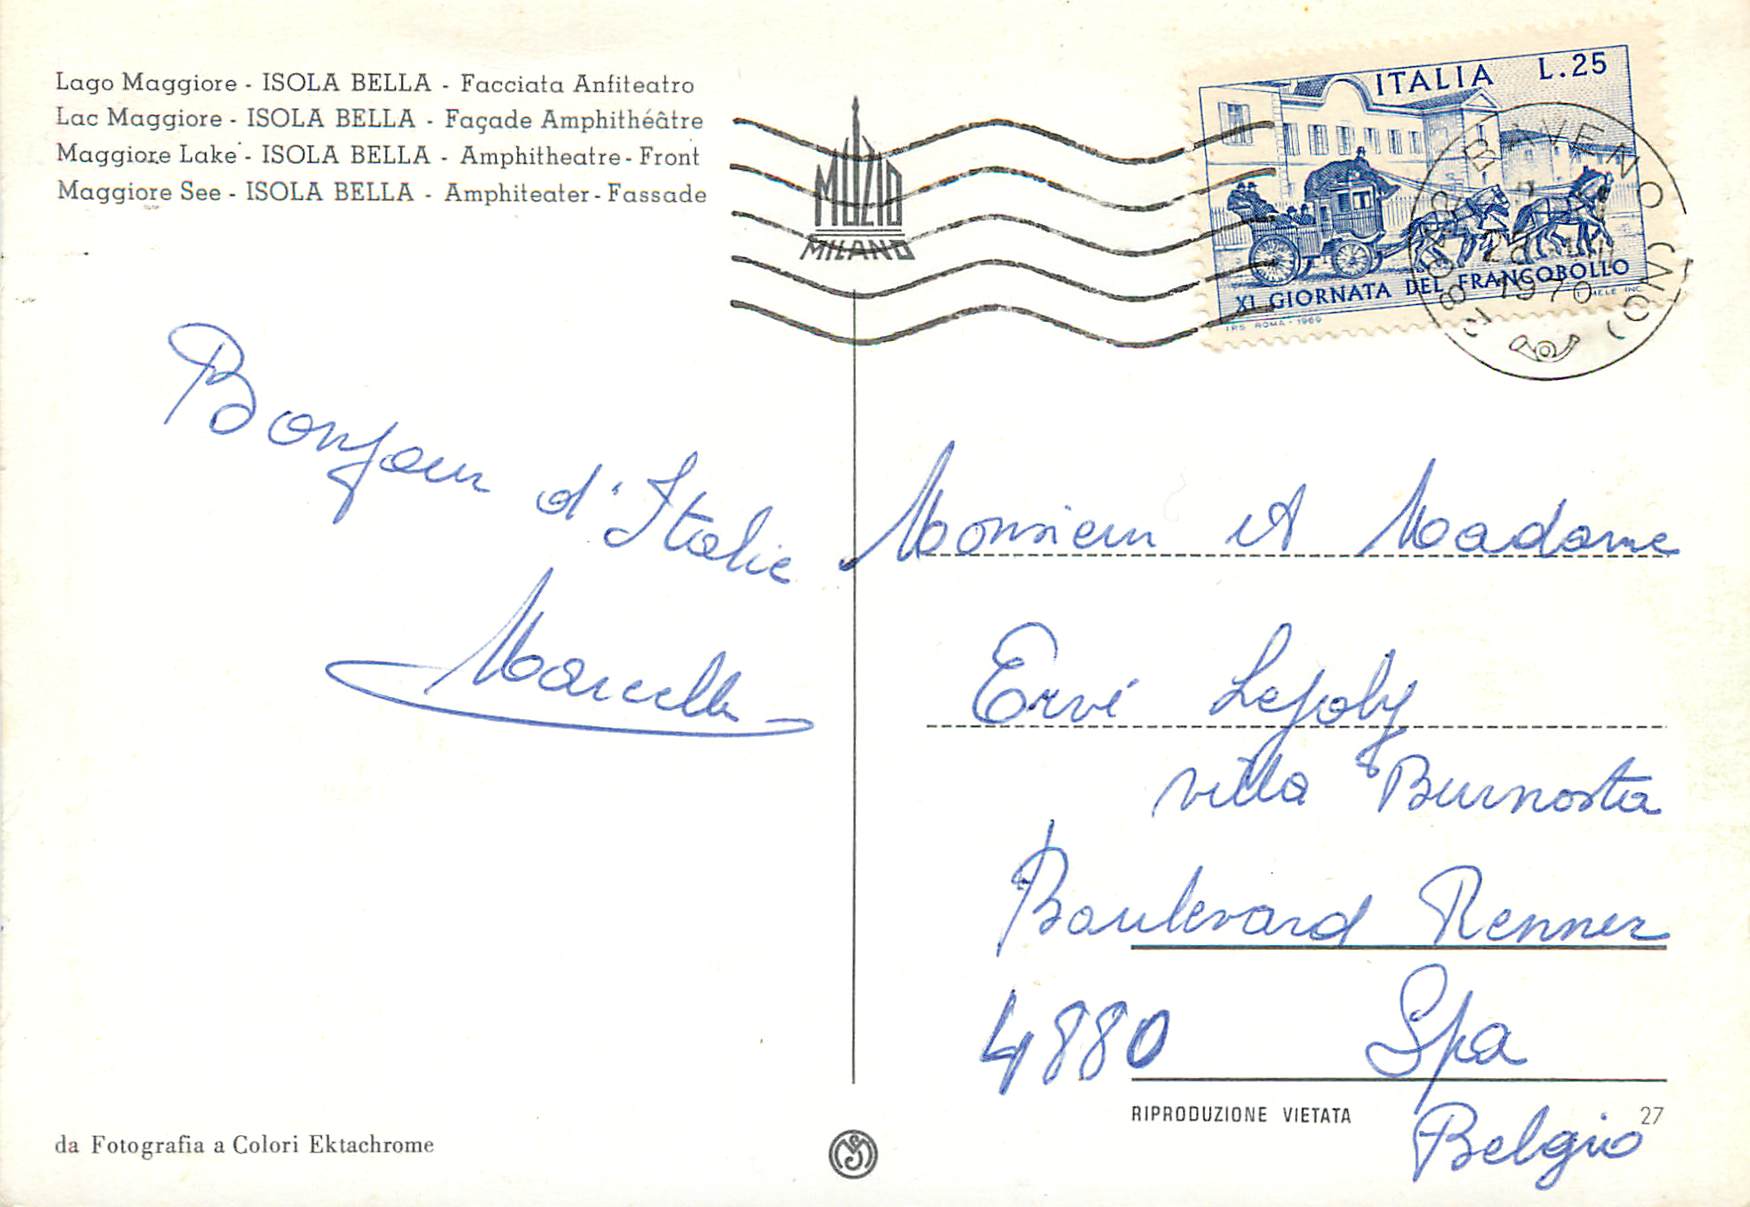 Lago Maggiore - ISOLA BELLA - Facciata Anfiteatro
Lac Maggiore - ISOLA BELLA - Façade Amphithéâtre
Maggiore Lake - ISOLA BELLA - Amphitheatre - Front
Maggiore See - ISOLA BELLA - Amphiteater - Fassade
MUZIO
MILANO
ITALIA L.25
XI GIORNATA DEL FRANCOBOLLO
I.P.S. ROMA - 1969
28042 BAVENO (NO)
1970
Bonjour d'Italie
Marcelle
Monsieur et Madame
Ervé Lejoly
villa Burnosta
Boulevard Renner
4880 Spa
Belgio
RIPRODUZIONE VIETATA
27
da Fotografia a Colori Ektachrome